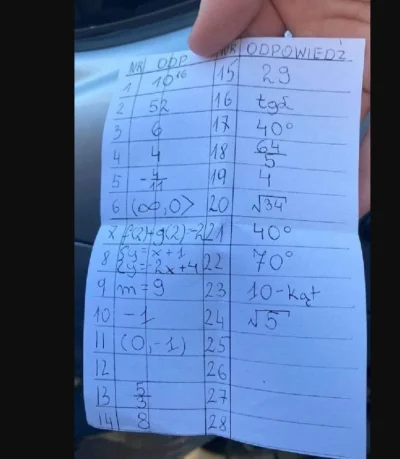 NR ODP. NR ODPOWIEDŹ
1 10¹⁶ 15 29
2 52 16 tgδ
3 6 17 40°
4 4 18 64/5
5 -4/11 19 4
6 (∞,0> 20 √34
7 f(2)+g(2)=2 21 40°
8 {y=x+1 {y=-2x+4 22 70°
9 m=9 23 10-kąt
10 -1 24 √5
11 (0,-1) 25
12 26
13 5/3 27
14 8 28